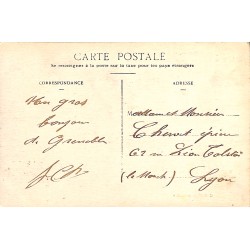 CARTE POSTALE
Se renseigner à la poste sur la taxe pour les pays étrangers
CORRESPONDANCE
ADRESSE
Un gros
bonjour
de Grenoble
Madame et Monsieur
Chevrot
62 rue Léon Tolstoï
Lyon